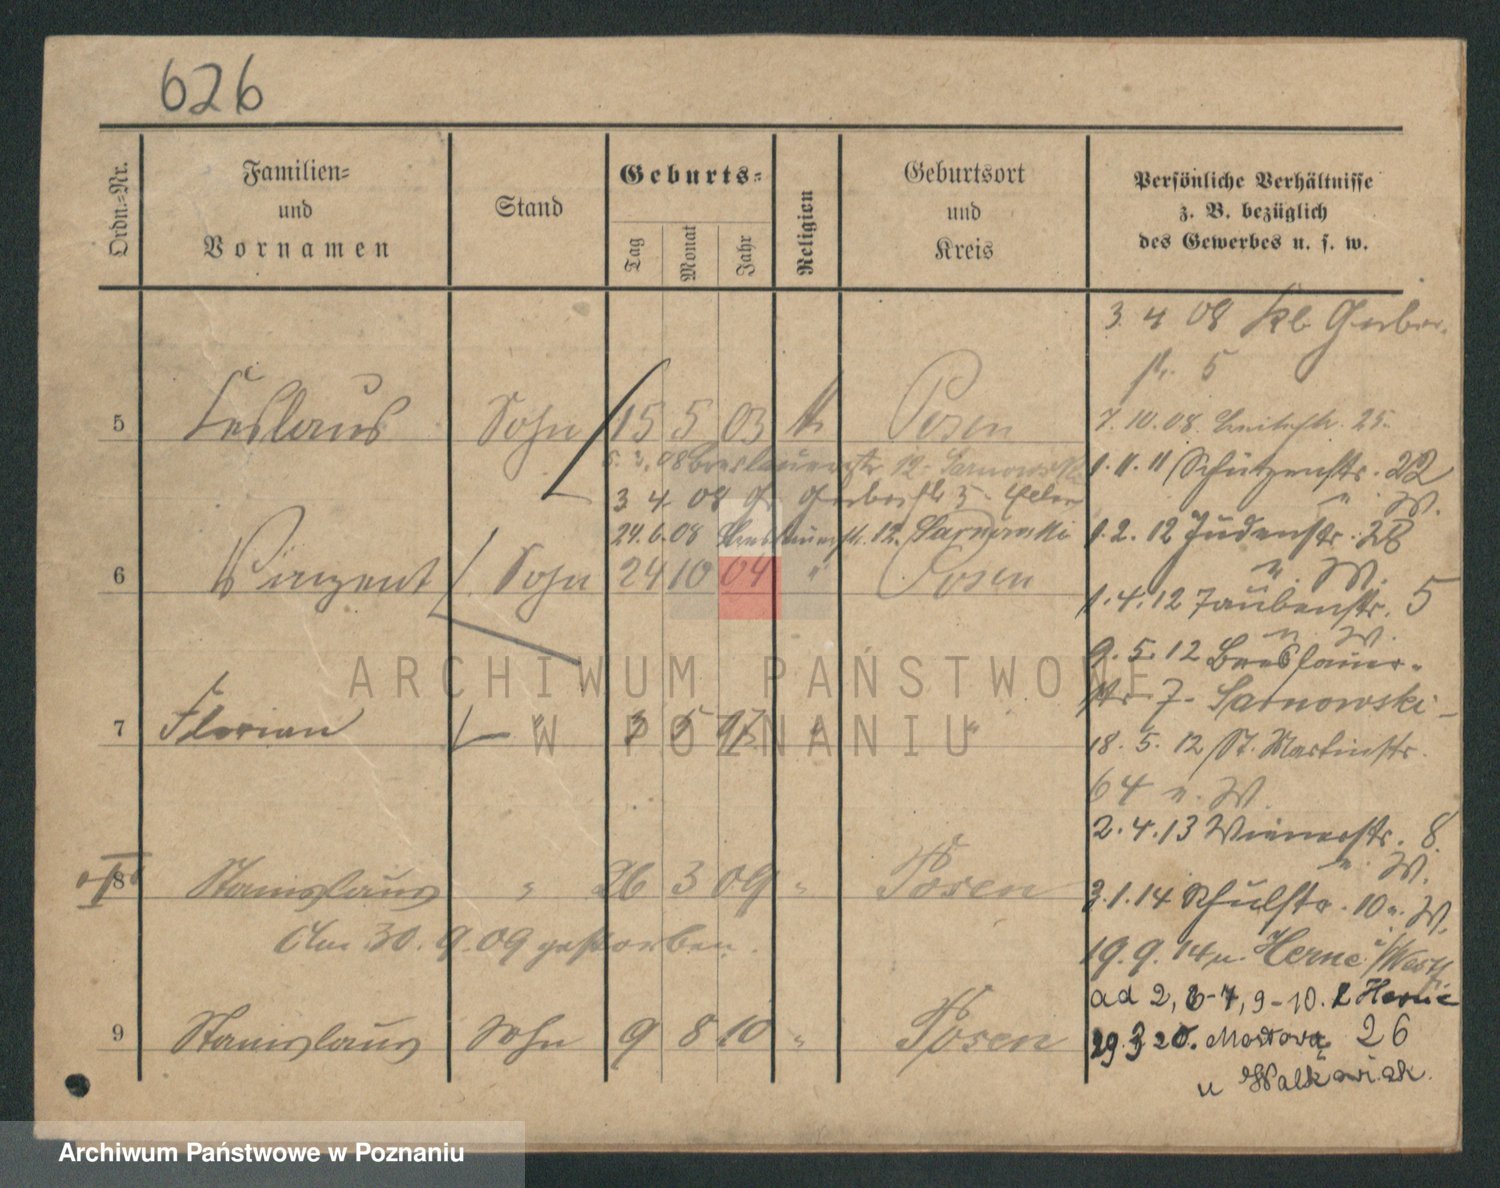 626
Ordn.-Nr.
Familien-
und
Vornamen
Stand
Geburts-
Tag
Monat
Jahr
Religion
Geburtsort
und
Kreis
Persönliche Verhältnisse
z. B. bezüglich
des Gewerbes u. s. w.
3. 4 08 Kl. Gerber-
str. 5
5 Ceslaus Sohn 15 5 03 k. Posen
7. 10. 08 25.
08 Breslauerstr 12 - Sarnowski
1. 11. 11 Schützenstr. 22
u. W.
3 4. 08 Gr Gerberstr 5 -
24. 6. 08 Breslauerstr. 12. Sarnowski
1. 2. 12 Judenstr. 28
u. W.
6 Vinzent Sohn 24 10 04 " Posen
1. 4. 12 Taubenstr. 5
u. W.
9. 5. 12 Breslauer-
str 7 - Sarnowski -
7 Florian " 3 5 97 " "
18. 5. 12 St. Martinstr.
64 u. W.
2. 4. 13 Wienerstr. 8.
u. W.
8 Stanislaus " 26 3 09 " Posen
3. 1. 14 Schulstr. 10 u. W.
Am 30. 9. 09 gestorben.
19. 9. 14 n. Herne i/Westf
ad 2, 6-7, 9-10. Herne
9 Stanislaus Sohn 9 8 10 " Posen
29. 3 20. Mostowa 26
u Walkowiak.
ARCHIWUM PAŃSTWOWE
W POZNANIU
Archiwum Państwowe w Poznaniu